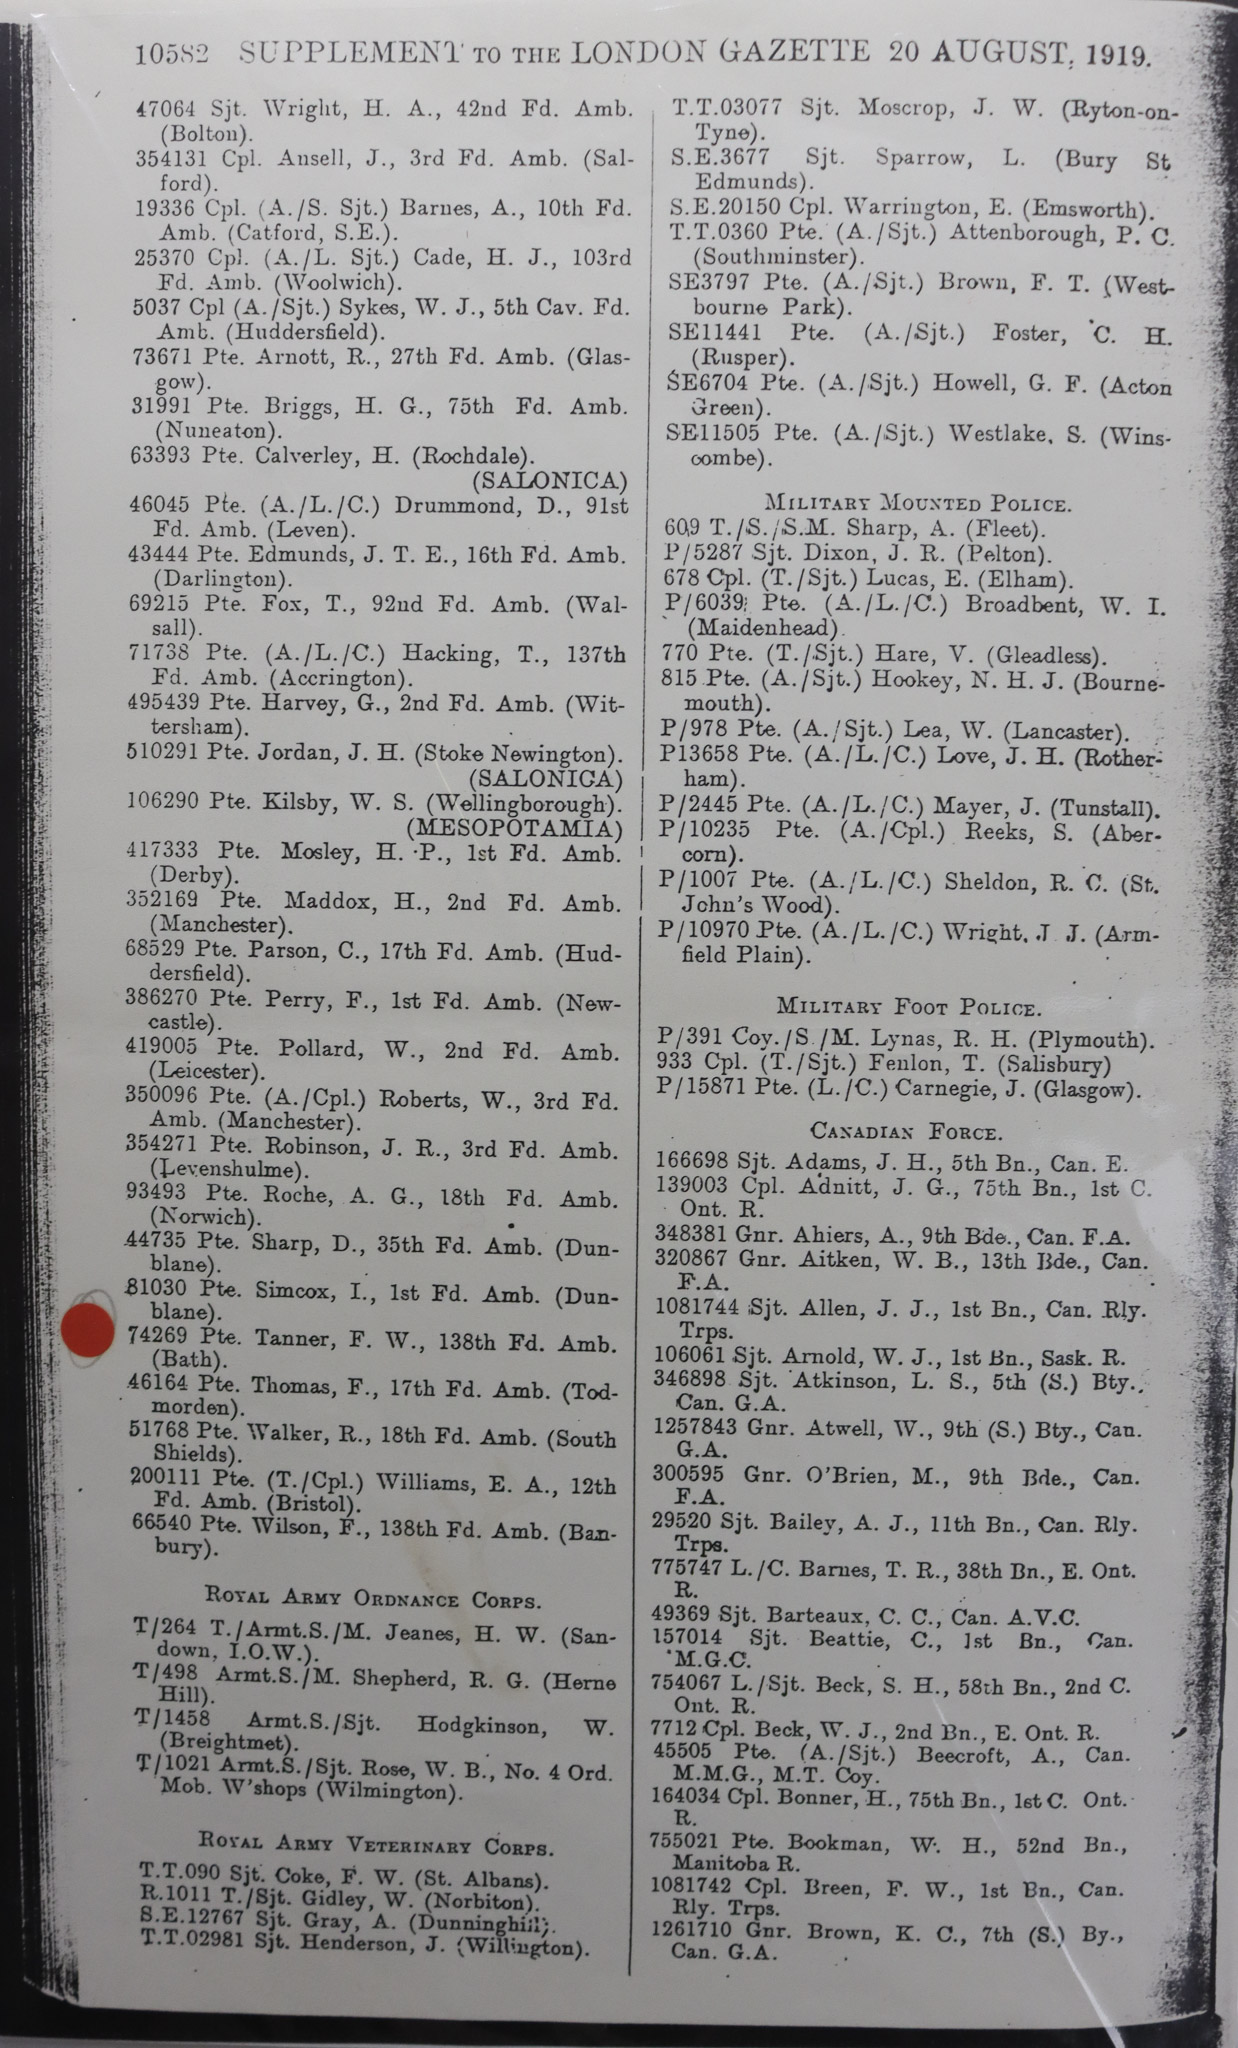 10582 SUPPLEMENT TO THE LONDON GAZETTE 20 AUGUST, 1919.
47064 Sjt. Wright, H. A., 42nd Fd. Amb.
(Bolton).
354131 Cpl. Ansell, J., 3rd Fd. Amb. (Sal-
ford).
19336 Cpl. (A./S. Sjt.) Barnes, A., 10th Fd.
Amb. (Catford, S.E.).
25370 Cpl. (A./L. Sjt.) Cade, H. J., 103rd
Fd. Amb. (Woolwich).
5037 Cpl (A./Sjt.) Sykes, W. J., 5th Cav. Fd.
Amb. (Huddersfield).
73671 Pte. Arnott, R., 27th Fd. Amb. (Glas-
gow).
31991 Pte. Briggs, H. G., 75th Fd. Amb.
(Nuneaton).
63393 Pte. Calverley, H. (Rochdale).
(SALONICA)
46045 Pte. (A./L./C.) Drummond, D., 91st
Fd. Amb. (Leven).
43444 Pte. Edmunds, J. T. E., 16th Fd. Amb.
(Darlington).
69215 Pte. Fox, T., 92nd Fd. Amb. (Wal-
sall).
71738 Pte. (A./L./C.) Hacking, T., 137th
Fd. Amb. (Accrington).
495439 Pte. Harvey, G., 2nd Fd. Amb. (Wit-
tersham).
510291 Pte. Jordan, J. H. (Stoke Newington).
(SALONICA)
106290 Pte. Kilsby, W. S. (Wellingborough).
(MESOPOTAMIA)
417333 Pte. Mosley, H. P., 1st Fd. Amb.
(Derby).
352169 Pte. Maddox, H., 2nd Fd. Amb.
(Manchester).
68529 Pte. Parson, C., 17th Fd. Amb. (Hud-
dersfield).
386270 Pte. Perry, F., 1st Fd. Amb. (New-
castle).
419005 Pte. Pollard, W., 2nd Fd. Amb.
(Leicester).
350096 Pte. (A./Cpl.) Roberts, W., 3rd Fd.
Amb. (Manchester).
354271 Pte. Robinson, J. R., 3rd Fd. Amb.
(Levenshulme).
93493 Pte. Roche, A. G., 18th Fd. Amb.
(Norwich).
44735 Pte. Sharp, D., 35th Fd. Amb. (Dun-
blane).
81030 Pte. Simcox, I., 1st Fd. Amb. (Dun-
blane).
74269 Pte. Tanner, F. W., 138th Fd. Amb.
(Bath).
46164 Pte. Thomas, F., 17th Fd. Amb. (Tod-
morden).
51768 Pte. Walker, R., 18th Fd. Amb. (South
Shields).
200111 Pte. (T./Cpl.) Williams, E. A., 12th
Fd. Amb. (Bristol).
66540 Pte. Wilson, F., 138th Fd. Amb. (Ban-
bury).
ROYAL ARMY ORDNANCE CORPS.
T/264 T./Armt.S./M. Jeanes, H. W. (San-
down, I.O.W.).
T/498 Armt.S./M. Shepherd, R. G. (Herne
Hill).
T/1458 Armt.S./Sjt. Hodgkinson, W.
(Breightmet).
T/1021 Armt.S./Sjt. Rose, W. B., No. 4 Ord.
Mob. W'shops (Wilmington).
ROYAL ARMY VETERINARY CORPS.
T.T.090 Sjt. Coke, F. W. (St. Albans).
R.1011 T./Sjt. Gidley, W. (Norbiton).
S.E.12767 Sjt. Gray, A. (Dunninghill).
T.T.02981 Sjt. Henderson, J. (Willington).
T.T.03077 Sjt. Moscrop, J. W. (Ryton-on-
Tyne).
S.E.3677 Sjt. Sparrow, L. (Bury St
Edmunds).
S.E.20150 Cpl. Warrington, E. (Emsworth).
T.T.0360 Pte. (A./Sjt.) Attenborough, P. C.
(Southminster).
SE3797 Pte. (A./Sjt.) Brown, F. T. (West-
bourne Park).
SE11441 Pte. (A./Sjt.) Foster, C. H.
(Rusper).
SE6704 Pte. (A./Sjt.) Howell, G. F. (Acton
Green).
SE11505 Pte. (A./Sjt.) Westlake, S. (Wins-
combe).
MILITARY MOUNTED POLICE.
609 T./S./S.M. Sharp, A. (Fleet).
P/5287 Sjt. Dixon, J. R. (Pelton).
678 Cpl. (T./Sjt.) Lucas, E. (Elham).
P/6039 Pte. (A./L./C.) Broadbent, W. I.
(Maidenhead).
770 Pte. (T./Sjt.) Hare, V. (Gleadless).
815 Pte. (A./Sjt.) Hookey, N. H. J. (Bourne-
mouth).
P/978 Pte. (A./Sjt.) Lea, W. (Lancaster).
P13658 Pte. (A./L./C.) Love, J. H. (Rother-
ham).
P/2445 Pte. (A./L./C.) Mayer, J. (Tunstall).
P/10235 Pte. (A./Cpl.) Reeks, S. (Aber-
corn).
P/1007 Pte. (A./L./C.) Sheldon, R. C. (St.
John's Wood).
P/10970 Pte. (A./L./C.) Wright, J. J. (Arm-
field Plain).
MILITARY FOOT POLICE.
P/391 Coy./S./M. Lynas, R. H. (Plymouth).
933 Cpl. (T./Sjt.) Fenlon, T. (Salisbury)
P/15871 Pte. (L./C.) Carnegie, J. (Glasgow).
CANADIAN FORCE.
166698 Sjt. Adams, J. H., 5th Bn., Can. E.
139003 Cpl. Adnitt, J. G., 75th Bn., 1st C.
Ont. R.
348381 Gnr. Ahiers, A., 9th Bde., Can. F.A.
320867 Gnr. Aitken, W. B., 13th Bde., Can.
F.A.
1081744 Sjt. Allen, J. J., 1st Bn., Can. Rly.
Trps.
106061 Sjt. Arnold, W. J., 1st Bn., Sask. R.
346898 Sjt. Atkinson, L. S., 5th (S.) Bty.,
Can. G.A.
1257843 Gnr. Atwell, W., 9th (S.) Bty., Can.
G.A.
300595 Gnr. O'Brien, M., 9th Bde., Can.
F.A.
29520 Sjt. Bailey, A. J., 11th Bn., Can. Rly.
Trps.
775747 L./C. Barnes, T. R., 38th Bn., E. Ont.
R.
49369 Sjt. Barteaux, C. C., Can. A.V.C.
157014 Sjt. Beattie, C., 1st Bn., Can.
M.G.C.
754067 L./Sjt. Beck, S. H., 58th Bn., 2nd C.
Ont. R.
7712 Cpl. Beck, W. J., 2nd Bn., E. Ont. R.
45505 Pte. (A./Sjt.) Beecroft, A., Can.
M.M.G., M.T. Coy.
164034 Cpl. Bonner, H., 75th Bn., 1st C. Ont.
R.
755021 Pte. Bookman, W. H., 52nd Bn.,
Manitoba R.
1081742 Cpl. Breen, F. W., 1st Bn., Can.
Rly. Trps.
1261710 Gnr. Brown, K. C., 7th (S.) By.,
Can. G.A.